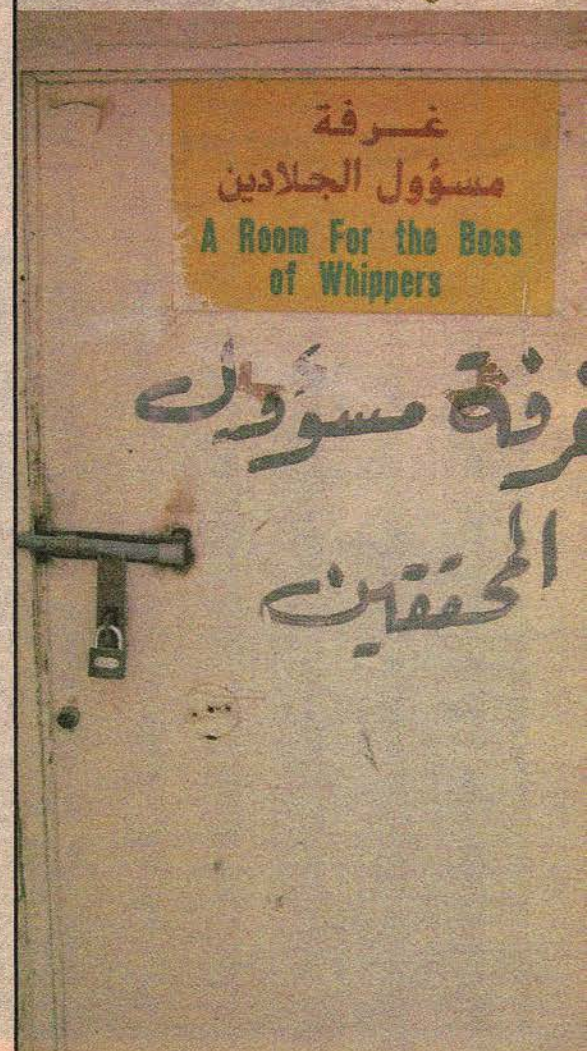 غرفة
مسؤول الجلادين
A Room For the Boss
of Whippers
غرفة مسؤول
المحققين